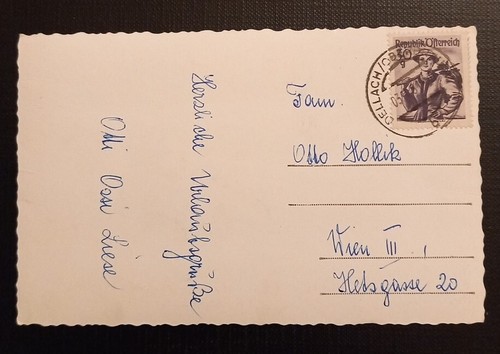 Herzliche Urlaubsgrüße
Otti Ossi Liese
Republik Österreich
DELLACH
Fam.
Otto Hollik
Wien III,
Hetzgasse 20